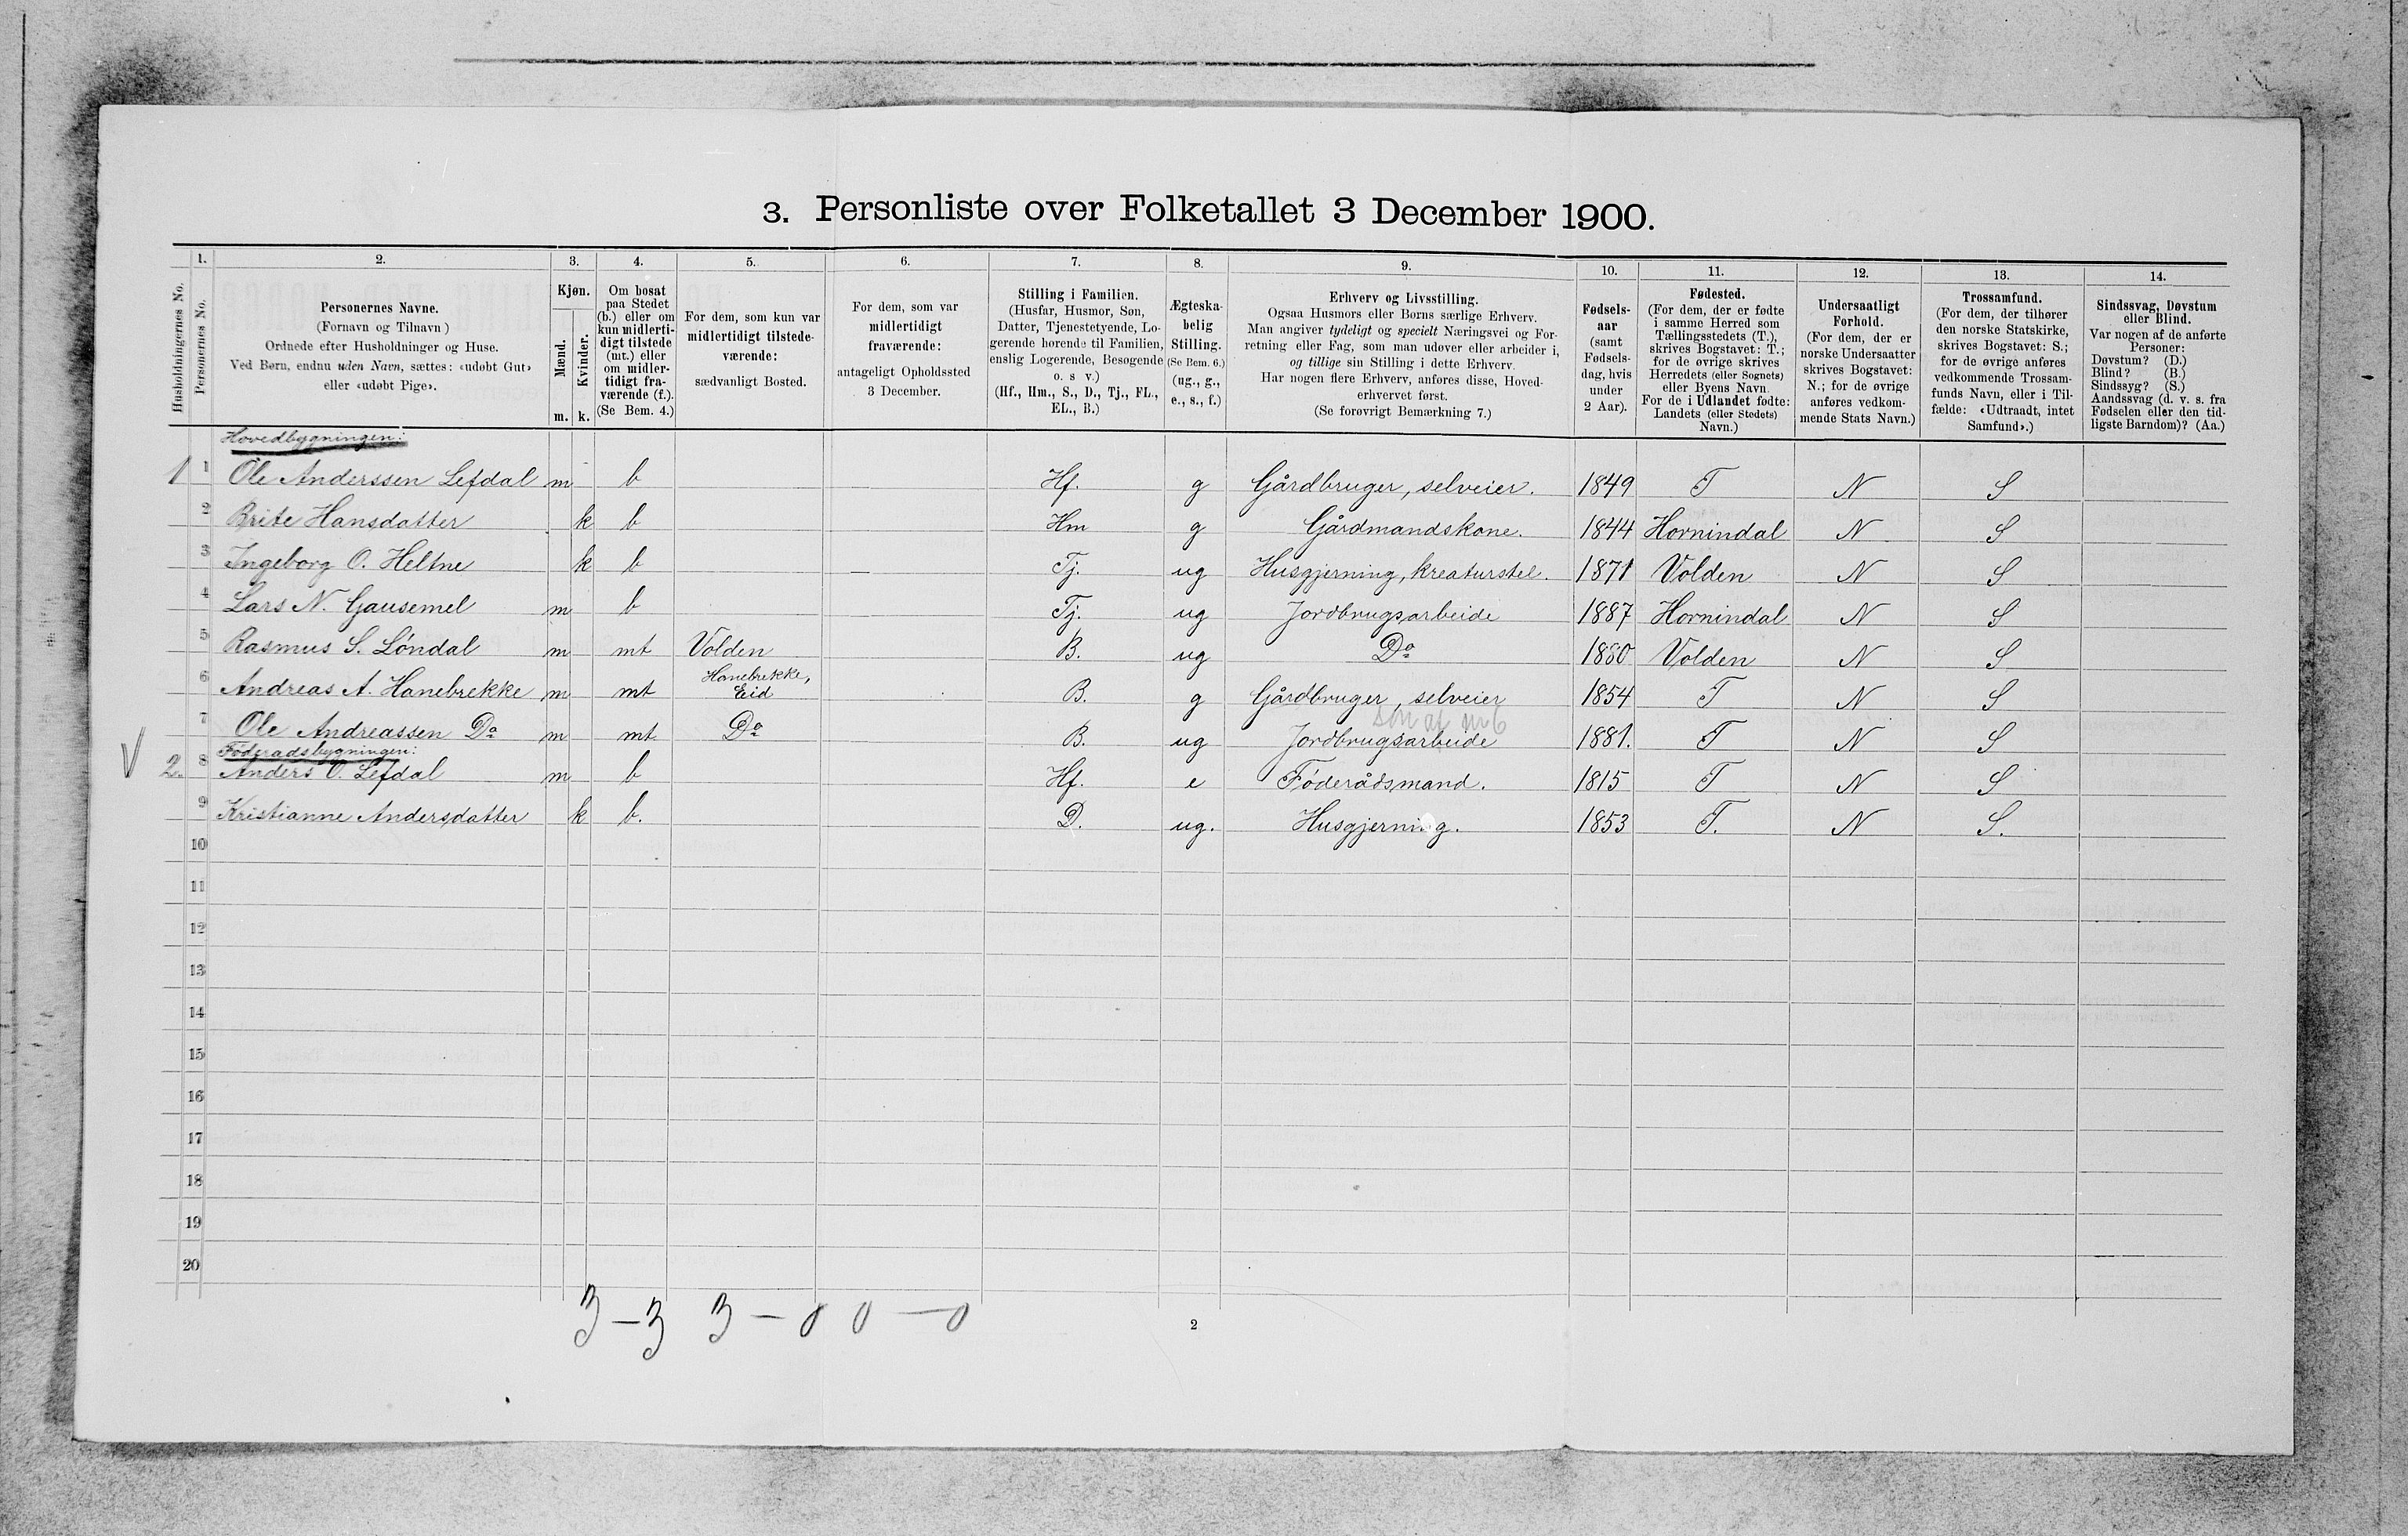 3. Personliste over Folketallet 3 December 1900.
1. 2. 3. 4. 5. 6. 7. 8. 9. 10. 11. 12. 13. 14.
Husholdningernes No.
Personernes No.
Personernes Navne.
(Fornavn og Tilnavn)
Ordnede efter Husholdninger og Huse.
Ved Børn, endnu uden Navn, sættes: «udøbt Gut»
eller «udøbt Pige».
Kjøn.
Mænd.
Kvinder.
m. k.
Om bosat
paa Stedet
(b.) eller om
kun midlerti-
digt tilstede
(mt.) eller
om midler-
tidigt fra-
værende (f.).
(Se Bem. 4.)
For dem, som kun var
midlertidigt tilstede-
værende:
sædvanligt Bosted.
For dem, som var
midlertidigt
fraværende:
antageligt Opholdssted
3 December.
Stilling i Familien.
(Husfar, Husmor, Søn,
Datter, Tjenestetyende, Lo-
gerende hørende til Familien,
enslig Logerende, Besøgende
o. s v.)
(Hf., Hm., S., D., Tj., FL.,
EL., B.)
Ægteska-
belig
Stilling.
(Se Bem. 6.)
(ug., g.,
e., s., f.)
Erhverv og Livsstilling.
Ogsaa Husmors eller Børns særlige Erhverv.
Man angiver tydeligt og specielt Næringsvei og For-
retning eller Fag, som man udøver eller arbeider i,
og tillige sin Stilling i dette Erhverv.
Har nogen flere Erhverv, anføres disse, Hoved-
erhvervet først.
(Se forøvrigt Bemærkning 7.)
Fødsels-
aar
(samt
Fødsels-
dag, hvis
under
2 Aar).
Fødested.
(For dem, der er fødte
i samme Herred som
Tællingsstedets (T.),
skrives Bogstavet: T.;
for de øvrige skrives
Herredets (eller Sognets)
eller Byens Navn.
For de i Udlandet fødte:
Landets (eller Stedets)
Navn.)
Undersaatligt
Forhold.
(For dem, der er
norske Undersaatter
skrives Bogstavet:
N.; for de øvrige
anføres vedkom-
mende Stats Navn.)
Trossamfund.
(For dem, der tilhører
den norske Statskirke,
skrives Bogstavet: S.;
for de øvrige anføres
vedkommende Trossam-
funds Navn, eller i Til-
fælde: «Udtraadt, intet
Samfund».)
Sindssvag, Døvstum
eller Blind.
Var nogen af de anførte
Personer:
Døvstum? (D.)
Blind? (B.)
Sindssyg? (S.)
Aandssvag (d. v. s. fra
Fødselen eller den tid-
ligste Barndom)? (Aa.)
Hovedbygningen:
1 1 Ole Anderssen Lefdal m b Hf. g Gårdbruger, selveier. 1849 T N S
2 Brite Hansdatter k b Hm g Gårdmandskone. 1844 Hornindal N S
3 Ingeborg O. Heltne k b — Tj. ug Husgjerning, kreaturstel. 1871 Volden N S
4 Lars N. Gausemel m b Tj. ug Jordbrugsarbeide 1887 Hornindal N S
5 Rasmus S. Løndal m mt Volden B. ug Do 1880 Volden N S
6 Andreas A. Hanebrekke m mt Hanebrekke, Eid B. g Gårdbruger, selveier 1854 T N S
søn af nr 6
7 Ole Andreassen Do m mt Do B. ug Jordbrugsarbeide 1881. T N S
Føderadsbygningen:
V 2. 8 Anders O. Lefdal m b Hf. e Føderådsmand. 1815 T N S
9 Kristianne Andersdatter k b. D. ug. Husgjerning. 1853 T. N S.
10
11
12
13
14
15
16
17
18
19
20
3 – 3 3 – 0 0 – 0
2